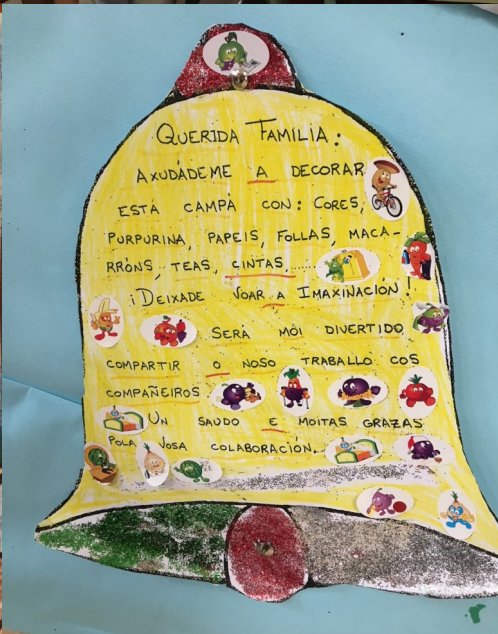 QUERIDA FAMILIA:
AXUDÁDEME A DECORAR
ESTÁ CAMPÁ CON: CORES,
PURPURINA, PAPEIS, FOLLAS, MACA-
RRÓNS, TEAS, CINTAS......
¡DEIXADE VOAR A IMAXINACIÓN!
SERÁ MÓI DIVERTIDO
COMPARTIR O NOSO TRABALLO COS
COMPAÑEIROS
UN SAUDO E MOITAS GRAZAS
POLA VOSA COLABORACIÓN.